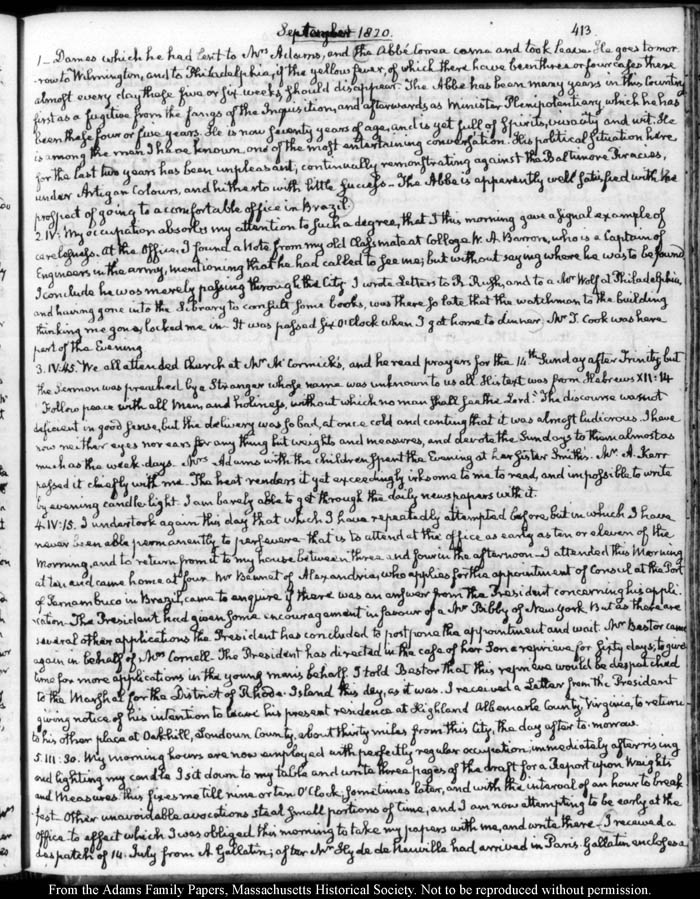 September 1820.
413
1— Dames which he had lent to Mrs Adams, and the Abbé Correa came and took leave. He goes to mor-
row to Wilmington, and to Philadelphia, if the yellow fever, of which there have been three or four cases there
almost every day these five or six weeks should disappear. The Abbé has been many years in this Country
first as a fugitive from the fangs of the Inquisition, and afterwards as Minister Plenipotentiary which he has
been these four or five years. He is now seventy years of age, and is yet full of Spirits, vivacity and wit. He
is among the men I have known, one of the most entertaining conversation. His political situation here
for the last two years has been unpleasant; continually remonstrating against the Baltimore Piracies,
under Artigan Colours, and hitherto with little success— The Abbé is apparently well satisfied with the
prospect of going to a comfortable office in Brazil.
2. IV: My occupation absorbs my attention to such a degree, that I this morning gave a signal example of
carelessness. At the Office, I found a Note from my old Classmate at College W. A. Barron, who is a Captain of
Engineers in the army, mentioning that he had called to see me; but without saying where he was to be found
I conclude he was merely passing through the City. I wrote Letters to R. Rush, and to a Mr Wolf at Philadelphia,
and having gone into the Library to consult some books, was there so late that the watchman to the building
thinking me gone, locked me in. It was passed six O'Clock when I got home to dinner. Mr T. Cook was here
part of the Evening
3. IV:45. We all attended Church at Mr McCormick's, and he read prayers for the 14th Sunday after Trinity, but
the Sermon was preached by a Stranger whose name was unknown to us all. His text was from Hebrews XII: 14
"Follow peace with all Men, and holiness, without which no man shall see the Lord." The discourse was not
deficient in good sense, but the delivery was so bad, at once cold and canting that it was almost ludicrous. I have
now neither eyes nor ears for any thing but weights and measures, and devote the Sundays to them almost as
much as the week-days. Mrs Adams with the children spent the Evening at her Sister Smith's. Mr A. Kerr
passed it chiefly with me. The heat renders it yet exceedingly irksome to me to read, and impossible to write
by evening candle light. I am barely able to get through the daily newspapers with it.
4. IV:15. I undertook again this day that which I have repeatedly attempted before, but in which I have
never been able permanently to persevere— that is to attend at the office as early as ten or eleven of the
Morning, and to return from it to my house between three and four in the afternoon— I attended this Morning
at ten and came home at four. Mr Bennet of Alexandria, who applies for the appointment of Consul at the Port
of Pernambuco in Brazil, came to enquire if there was an answer from the President concerning his appli-
cation. The President had given some encouragement in favour of a Mr Bibby of New York But as there are
several other applications the President has concluded to postpone the appointment and wait. Mr Bestor came
again in behalf of Mrs Cornell. The President has directed in the case of her Son a reprieve for sixty days; to give
time for more applications in the young man's behalf. I told Bestor that this reprieve would be despatched
to the Marshal for the District of Rhode-Island this day, as it was. I received a Letter from the President
giving notice of his intention to leave his present residence at Highland Albemarle County, Virginia, to return
to his other place at Oakhill, Loudoun County, about thirty miles from this City, the day after to-morrow.
5. III:30. My morning hours are now employed with perfectly regular occupation; immediately after rising
and lighting my candle I sit down to my table and write three pages of the draft for a Report upon Weights
and Measures. This fixes me till nine or ten O'Clock, sometimes later, and with the interval of an hour to break-
fast. Other unavoidable avocations steal small portions of time, and I am now attempting to be early at the
Office— to effect which I was obliged this morning to take my papers with me, and write there— I received a
despatch of 14. July from A. Gallatin; after Mr Hyde de Neuville had arrived in Paris. Gallatin encloses a
From the Adams Family Papers, Massachusetts Historical Society. Not to be reproduced without permission.